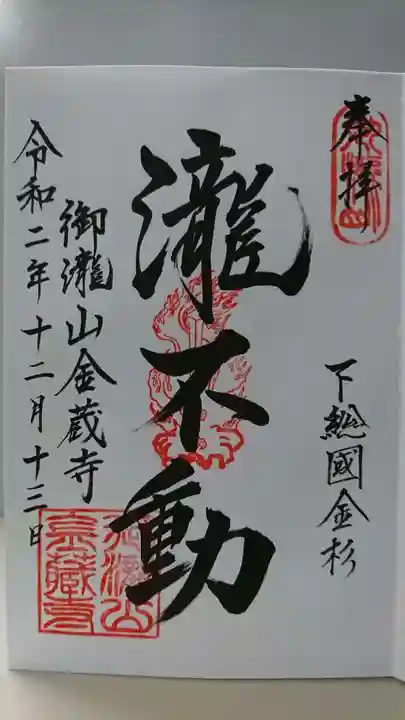 奉拝
下總國金杉
瀧不動
御瀧山金蔵寺
令和二年十二月十三日